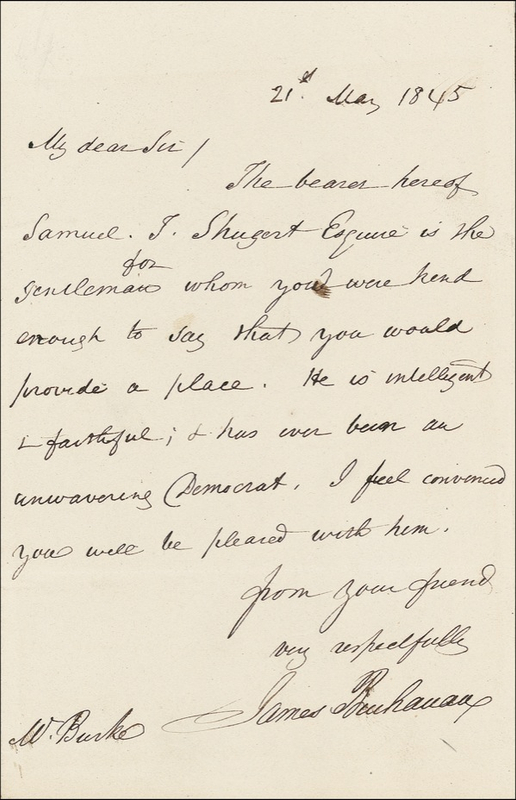 21st May 1845
My dear Sir /
The bearer hereof
Samuel. T. Shugert Esquire is the
for
gentleman whom you were kind
enough to say that you would
provide a place. He is intelligent
& faithful; & has ever been an
unwavering Democrat. I feel convinced
you will be pleased with him.
from your friend
very respectfully
James Buchanan
W. Burke